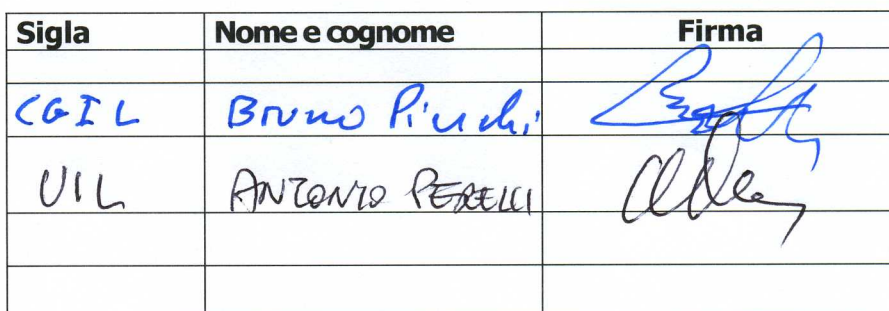 Sigla Nome e cognome Firma
CGIL Bruno
UIL ANTONIO PERELLI